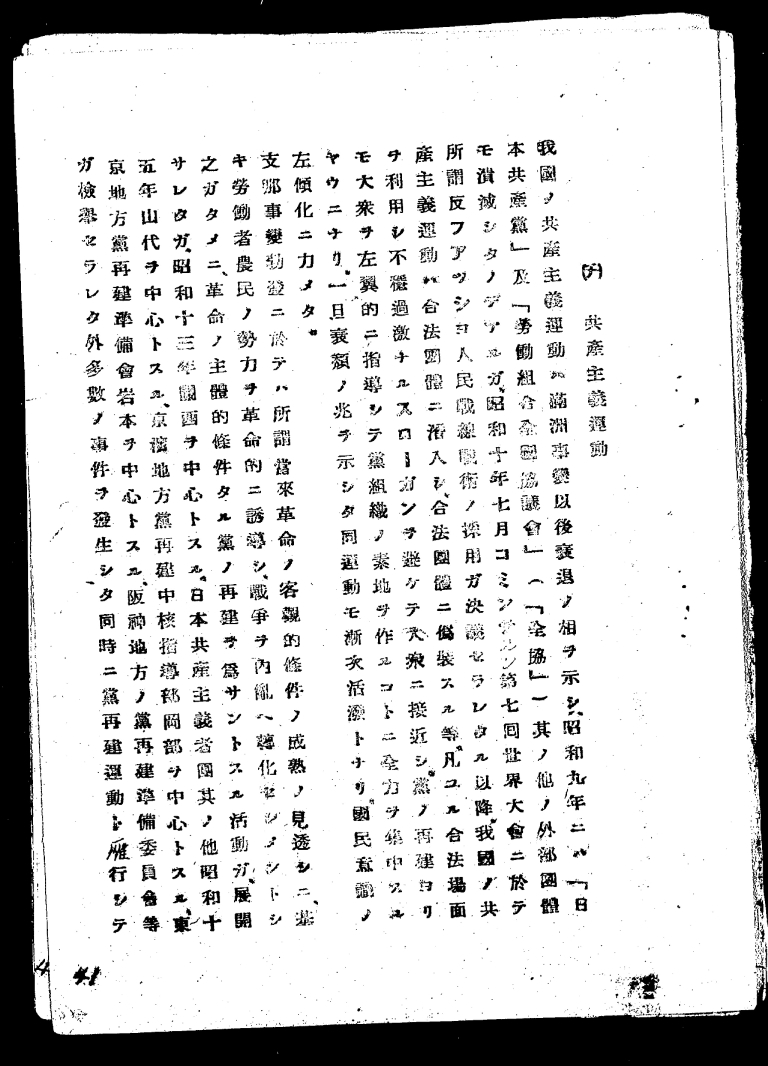 (チ) 共產主義運動
我國ノ共產主義運動ハ滿洲事變以後衰退ノ相ヲ示シ、昭和九年ニハ「日
本共產黨」及「勞働組合全國協議會」(「全協」)其ノ他ノ外部團體
モ潰滅シタノデアルガ、昭和十年七月コミンテルン第七回世界大會ニ於テ
所謂反フアツシヨ人民戰線戰術ノ採用ガ決議セラレタル以降、我國ノ共
產主義運動ハ合法團體ニ潛入シ、合法團體ニ僞裝スル等、凡ユル合法場面
ヲ利用シ不穩過激ナルスローガンヲ避ケテ大衆ニ接近シ、黨ノ再建ヨリ
モ大衆ヲ左翼的ニ指導シテ黨組織ノ素地ヲ作ルコトニ全力ヲ集中スル
ヤウニナリ、一旦衰頽ノ兆ヲ示シタ同運動モ漸次活潑トナリ、國民意識ノ
左傾化ニ力メタ。
支那事變勃發ニ於テハ所謂當來革命ノ客觀的條件ノ成熟ノ見透シニ、基
キ勞働者農民ノ勢力ヲ革命的ニ誘導シ、戰爭ヲ內亂ヘ轉化セシメントシ
之ガタメニ、革命ノ主體的條件タル黨ノ再建ヲ爲サントスル活動ガ、展開
サレタガ、昭和十三年關西ヲ中心トスル、日本共產主義者團其ノ他昭和十
五年山代ヲ中心トスル、京濱地方黨再建中核指導部岡部ヲ中心トスル、東
京地方黨再建準備會岩本ヲ中心トスル、阪神地方ノ黨再建準備委員會等
ガ檢擧セラレタ外多數ノ事件ヲ發生シタ同時ニ黨再建運動ト雁行シテ
41
4